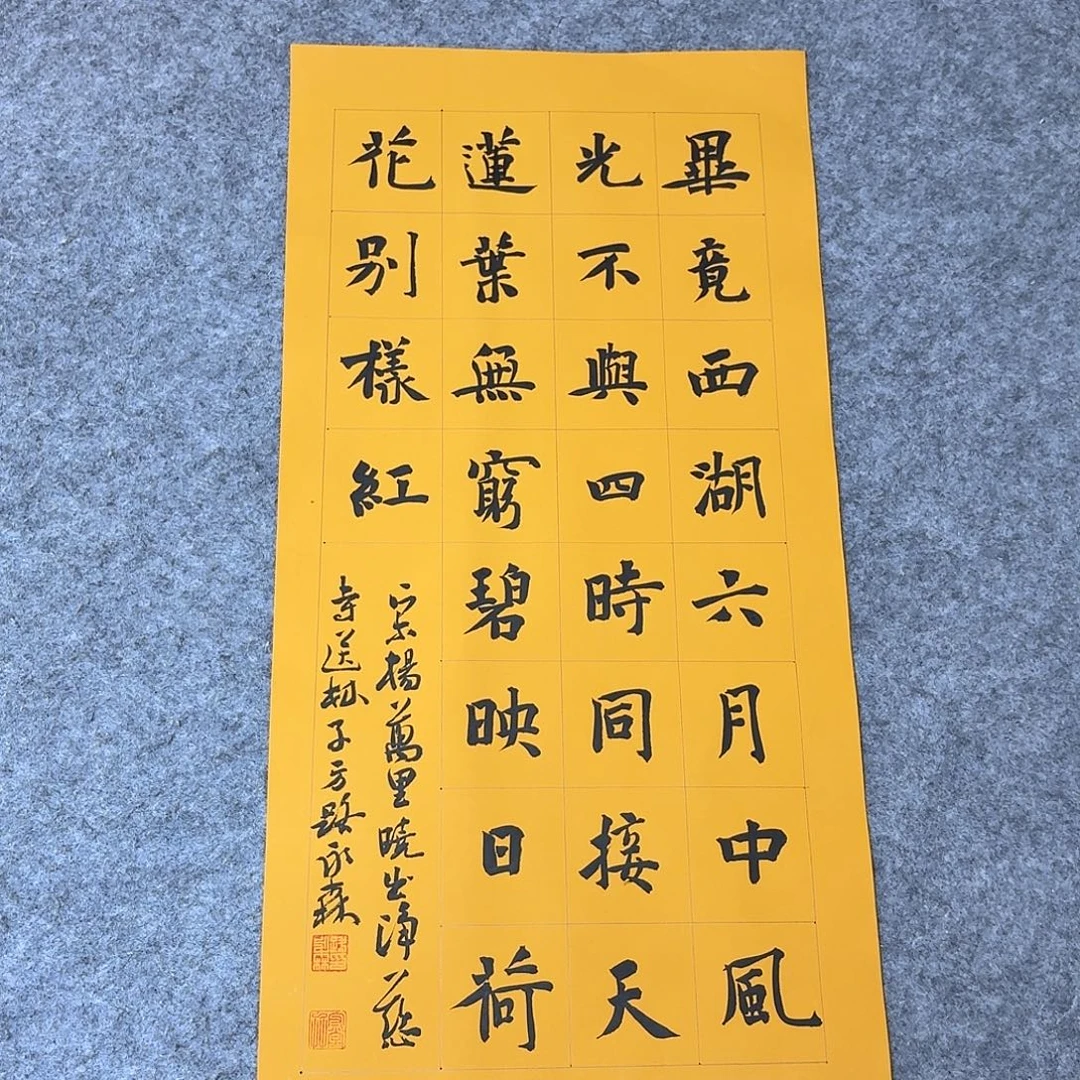 畢竟西湖六月中風
光不與四時同接天
蓮葉無窮碧映日荷
花別樣紅
宋揚萬里曉出淨慈
寺送林子方路永森